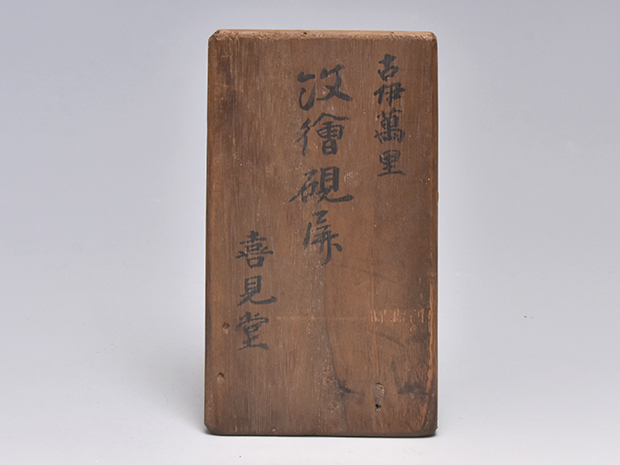 古伊萬里
繪硯屏
喜見堂